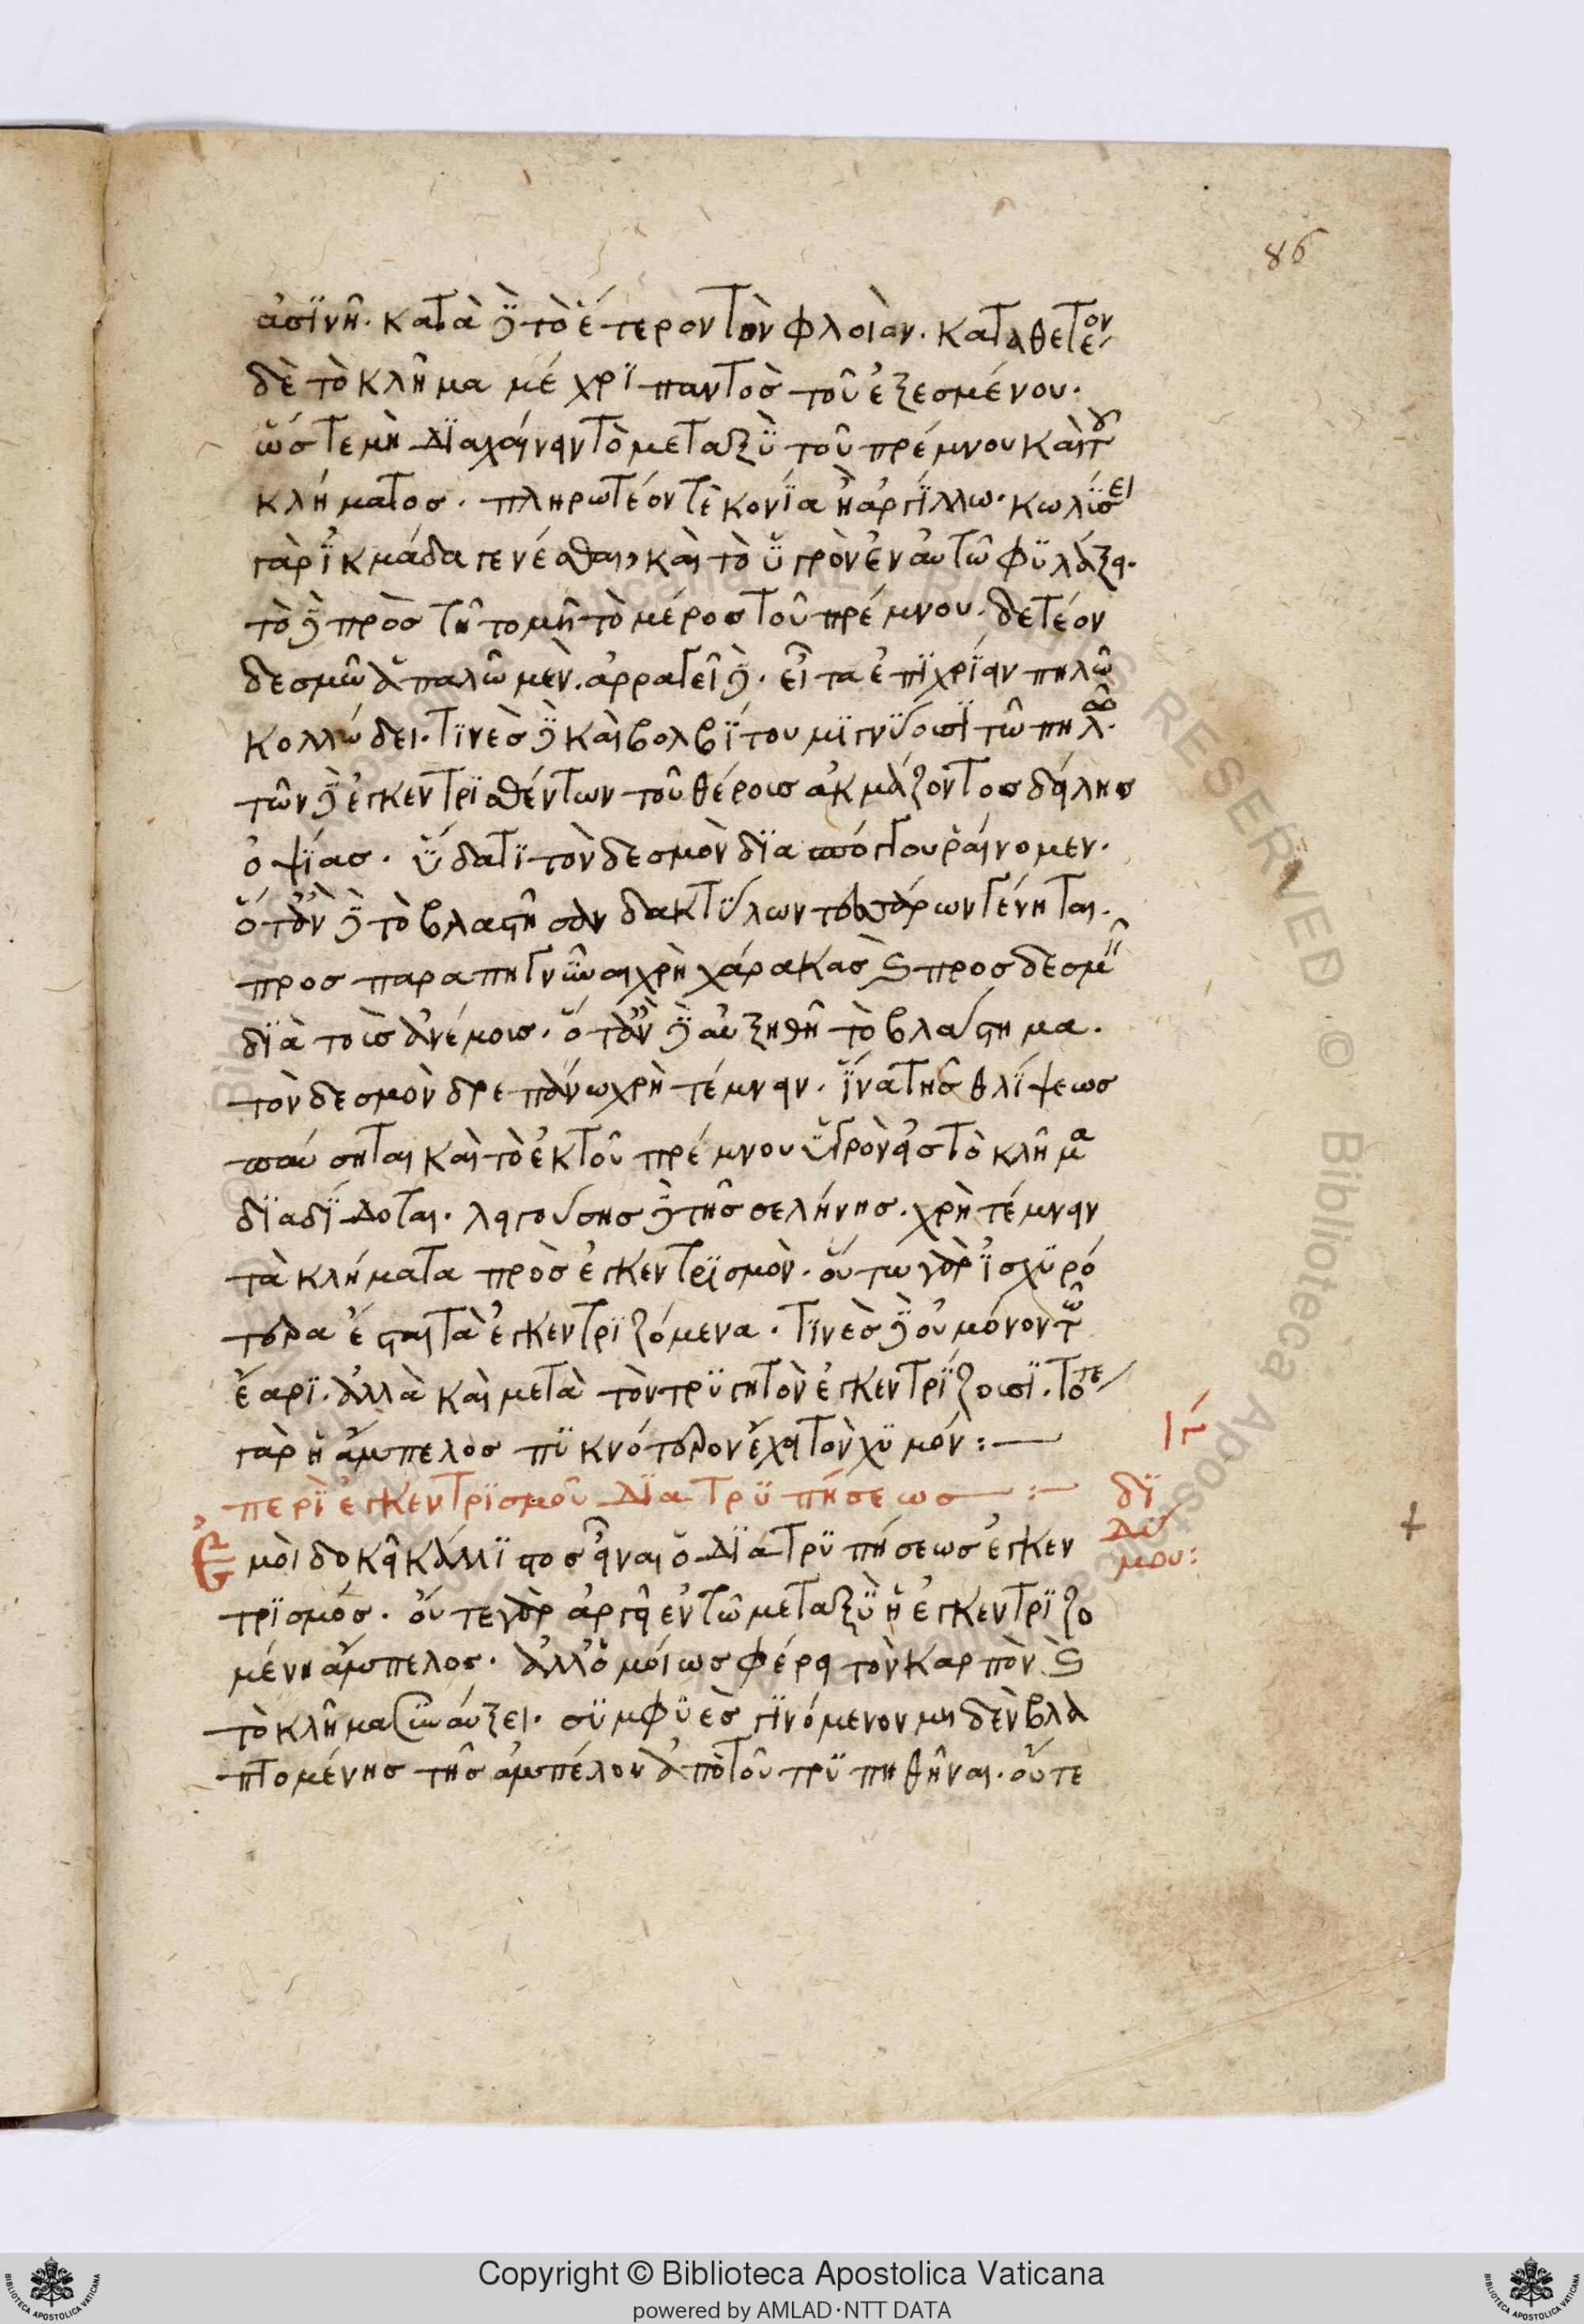 86
ἀσϊνῆ. κατὰ δὲ τὸ ἕτερον τὸν φλοιὰν. καταθετέον
δὲ τὸ κλῆμα μέχρϊ παντὸσ τοῦ ἐξεσμένου.
ὥστε μὴ δϊαχαίνειν τὸ μεταξὺ τοῦ πρέμνου καὶ τοῦ
κλήματοσ. πληρωτέον τὲ κονία ἢ ἀργϊλλω. κωλύσει
γὰρ ϊκμάδα γενέσθαι, καὶ τὸ ὑγρὸν ἐν ἀυτῶ φϋλάξει.
τὸ δὲ πρὸσ τῆ τομῆ τὸ μέροσ τοῦ πρέμνου. δετέον
δεσμῶ ἁπαλῶ μὲν. ἀρραγεῖ δὲ. εἶτα ἐπϊχρίειν πηλῶ
κολλώδει. τϊνὲσ δὲ καὶ βολβίτου μϊγνύουσϊ τῶ πηλῶ.
τῶν δὲ ἐγκεντρϊσθέντων τοῦ θέρουσ ἀκμάζοντοσ δείλησ
ὀψίασ. ὕδατϊ τὸν δεσμὸν δϊα σπόγγου ῥαίνομεν.
ὅτὰν δὲ τὸ βλαστῆσαν δακτύλων τεσσάρων γένηται.
προσπαραπηγνῦναι χρὴ χάρακασ καὶ προσδεσμεῖν
δϊὰ τοὺσ ἀνέμουσ. ὅτὰν δὲ ἀυξηθῆ τὸ βλάστημα.
τὸν δεσμὸν δρεπάνω χρὴ τέμνειν. ἵνα τῆσ θλίψεωσ
παύσηται καὶ τὸ ἐκ τοῦ πρέμνου ὑγρὸν εἰσ τὸ κλῆμα
δϊαδίδοται. ληγούσησ δὲ τῆσ σελήνησ. χρὴ τέμνειν
τὰ κλήματα πρὸσ ἐγκεντρϊσμὸν. οὕτω γὰρ ϊσχϋρό
τερα ἔσται τὰ ἐγκεντρϊζόμενα. τϊνὲσ δὲ οὐ μόνον τῶ
ἔαρϊ. ἀλλὰ καὶ μετὰ τὸν τρϋγητὸν ἐγκεντρίζουσϊ. τότε
γὰρ ἡ ἄμπελοσ πϋκνότερον ἔχει τὸν χϋμόν :—
ιγ
περὶ ἐγκεντρϊσμοῦ δϊα τρϋπήσεωσ— :—
δϊδύμου:
Ἐμοὶ δοκεῖ κάλλϊστοσ εἶναι ὁ δϊὰ τρϋπήσεωσ ἐγκεν
τρϊσμόσ. οὔτε γὰρ ἀργεῖ ἐν τῶ μεταξὺ ἡ ἐγκεντρϊζο
μένη ἄμπελοσ. ἀλλ' ὁμοίωσ φέρει τὸν καρπὸν καὶ
τὸ κλῆμα συναύξει. σϋμφϋὲσ γϊνόμενον μηδὲν βλα
πτομένησ τῆσ ἀμπέλου ἀπὸ τοῦ τρϋπηθῆναι. οὔτε
Copyright © Biblioteca Apostolica Vaticana
powered by AMLAD·NTT DATA